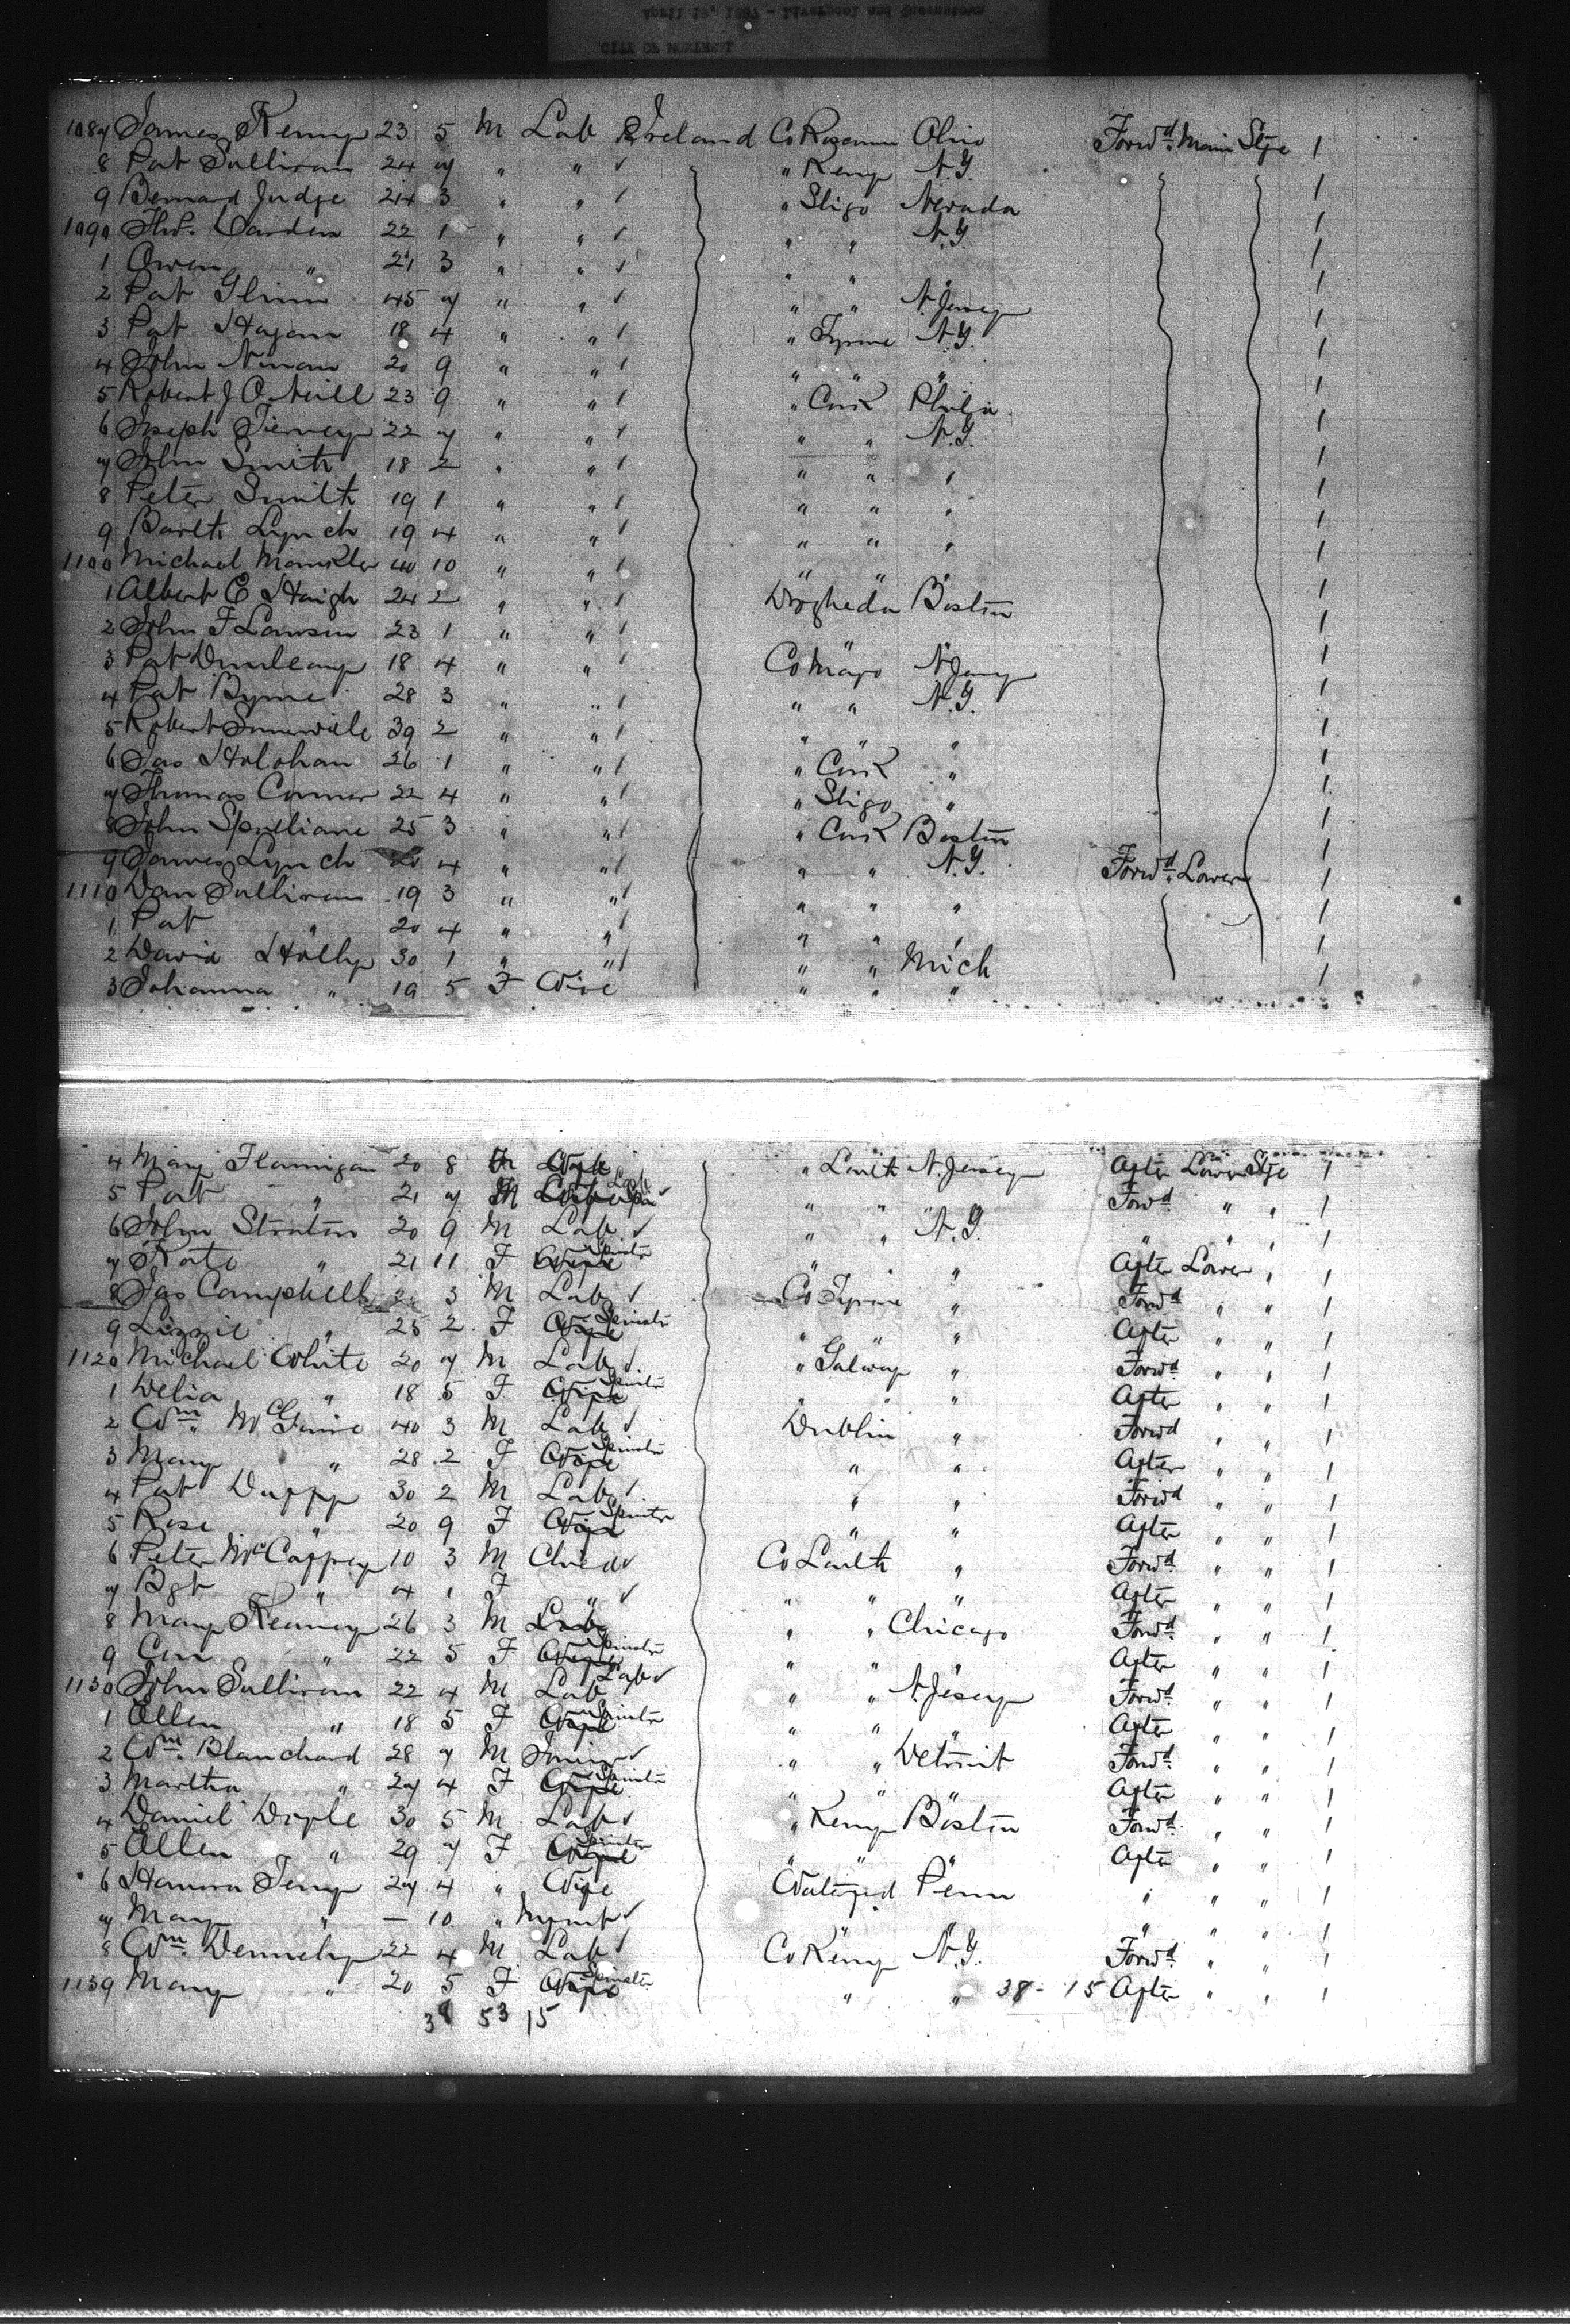 1087 James Kenny 23 5 M Lab Ireland Co Roscommon Ohio Forwd. Main Stge 1
8 Pat Sullivan 24 7 " " " Kerry N.Y. 1
9 Bernard Judge 24 3 " " " Sligo Nevada 1
1090 Thos. Carden 22 1 " " " " N.Y. 1
1 Owen " 21 3 " " " " " 1
2 Pat Glinn 45 7 " " " " N. Jersey 1
3 Pat Hagan 18 4 " " " Tyrone N.Y. 1
4 John 20 9 " " " " " 1
5 Robert J O'Neill 23 9 " " " Cork Phila. 1
6 Joseph Tierney 22 7 " " " " N.Y. 1
7 John Smith 18 2 " " " " " 1
8 Peter Smith 19 1 " " " " " 1
9 Barth Lynch 19 4 " " " " " 1
1100 Michael 40 10 " " " " " 1
1 Albert E Haigh 24 2 " " Drogheda Boston 1
2 John F Lawson 23 1 " " " " 1
3 Pat Dunleavy 18 4 " " Co Mayo N Jersey 1
4 Pat Byrne 28 3 " " " " N.Y. 1
5 Robert 39 2 " " " " " 1
6 Jas Holohan 26 1 " " " Cork " 1
7 Thomas Connor 22 4 " " " Sligo " 1
8 John Spilliane 25 3 " " " Cork Boston 1
9 James Lynch 20 4 " " " " N.Y. Forwd. Lower 1
1110 Dan Sullivan 19 3 " " " " " 1
1 Pat " 20 4 " " " " " 1
2 David Holly 30 1 " " " " Mich 1
3 Johanna " 19 5 F Wife " " " 1
4 Mary Flannigan 20 8 Wife " Louth N. Jersey After Lower Stge 1
5 Pat " 21 7 M Lab " " " Forwd " " 1
6 John Stratton 20 9 M Lab " " N.Y. " " " 1
7 Kate " 21 11 F Wife Spinster " " After Lower " 1
8 Jas Campbell 3 M Lab Co Tyrone " Forwd " " 1
9 Lizzie " 25 2 F Wife Spinster " " " After " " 1
1120 Michael White 20 7 M Lab " Galway " Forwd " " 1
1 Delia " 18 5 F Wife Spinster " " " After " " 1
2 Wm. McGuire 40 3 M Lab Dublin " Forwd " " 1
3 Mary " 28 2 F Wife Spinster " " After " " 1
4 Pat Duffy 30 2 M Lab " " Forwd " " 1
5 Rose " 20 9 F Wife Spinster " " After " " 1
6 Peter McCaffrey 10 3 M Child Co Louth " Forwd " " 1
7 Bgt " 4 1 F " " " " After " " 1
8 Mary Kearney 26 3 M Lab " " Chicago Forwd " " 1
9 " 22 5 F Wife Spinster " " " After " " 1
1130 John Sullivan 22 4 M Lab Lab " " N. Jersey Forwd " " 1
1 Ellen " 18 5 F Wife Spinster " " " After " " 1
2 Wm. Blanchard 28 7 M " " Detroit Forwd " " 1
3 Martha " 27 4 F Wife Spinster " " " After " " 1
4 Daniel Doyle 30 5 M Lab " Kerry Boston Forwd. " " 1
5 Ellen " 29 7 F Wife Spinster " " " After " " 1
6 Hanora 27 4 " Wife Waterford Penn " " " 1
7 Mary " — 10 " " " " " " 1
8 Wm. Dennehy 22 4 M Lab Co Kerry N.Y. Forwd. " " 1
1139 Mary " 20 5 F Wife Spinster " " 38 - 15 After " " 1
38 53 15